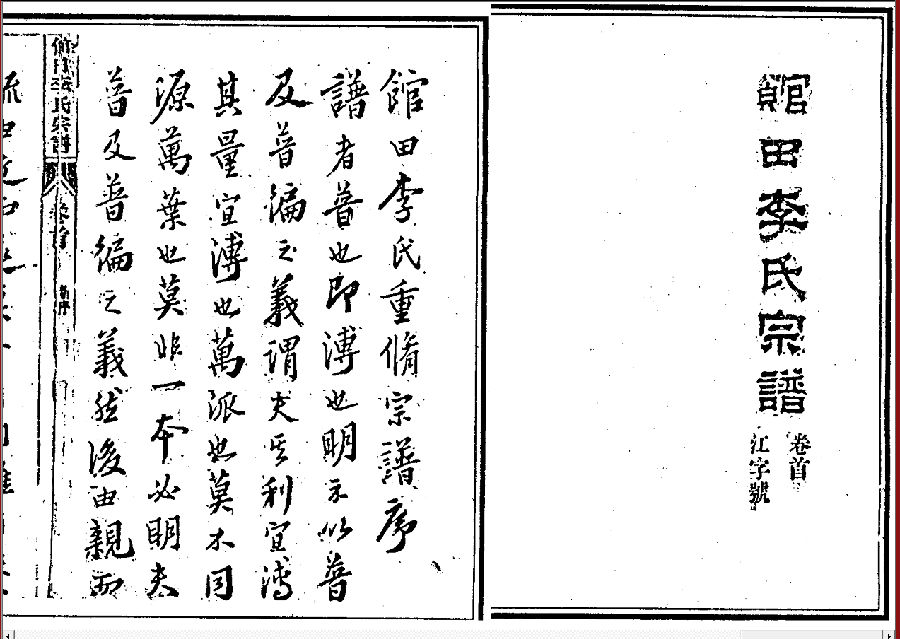 館田李氏宗譜
卷首
江字號
館田李氏重脩宗譜序
譜者普也即溥也明示以普
及普徧之義謂夫其利宜溥
其量宜溥也萬派也莫不同
源萬葉也莫非一本必明夫
普及普徧之義然後由親而
館田李氏宗譜
卷首